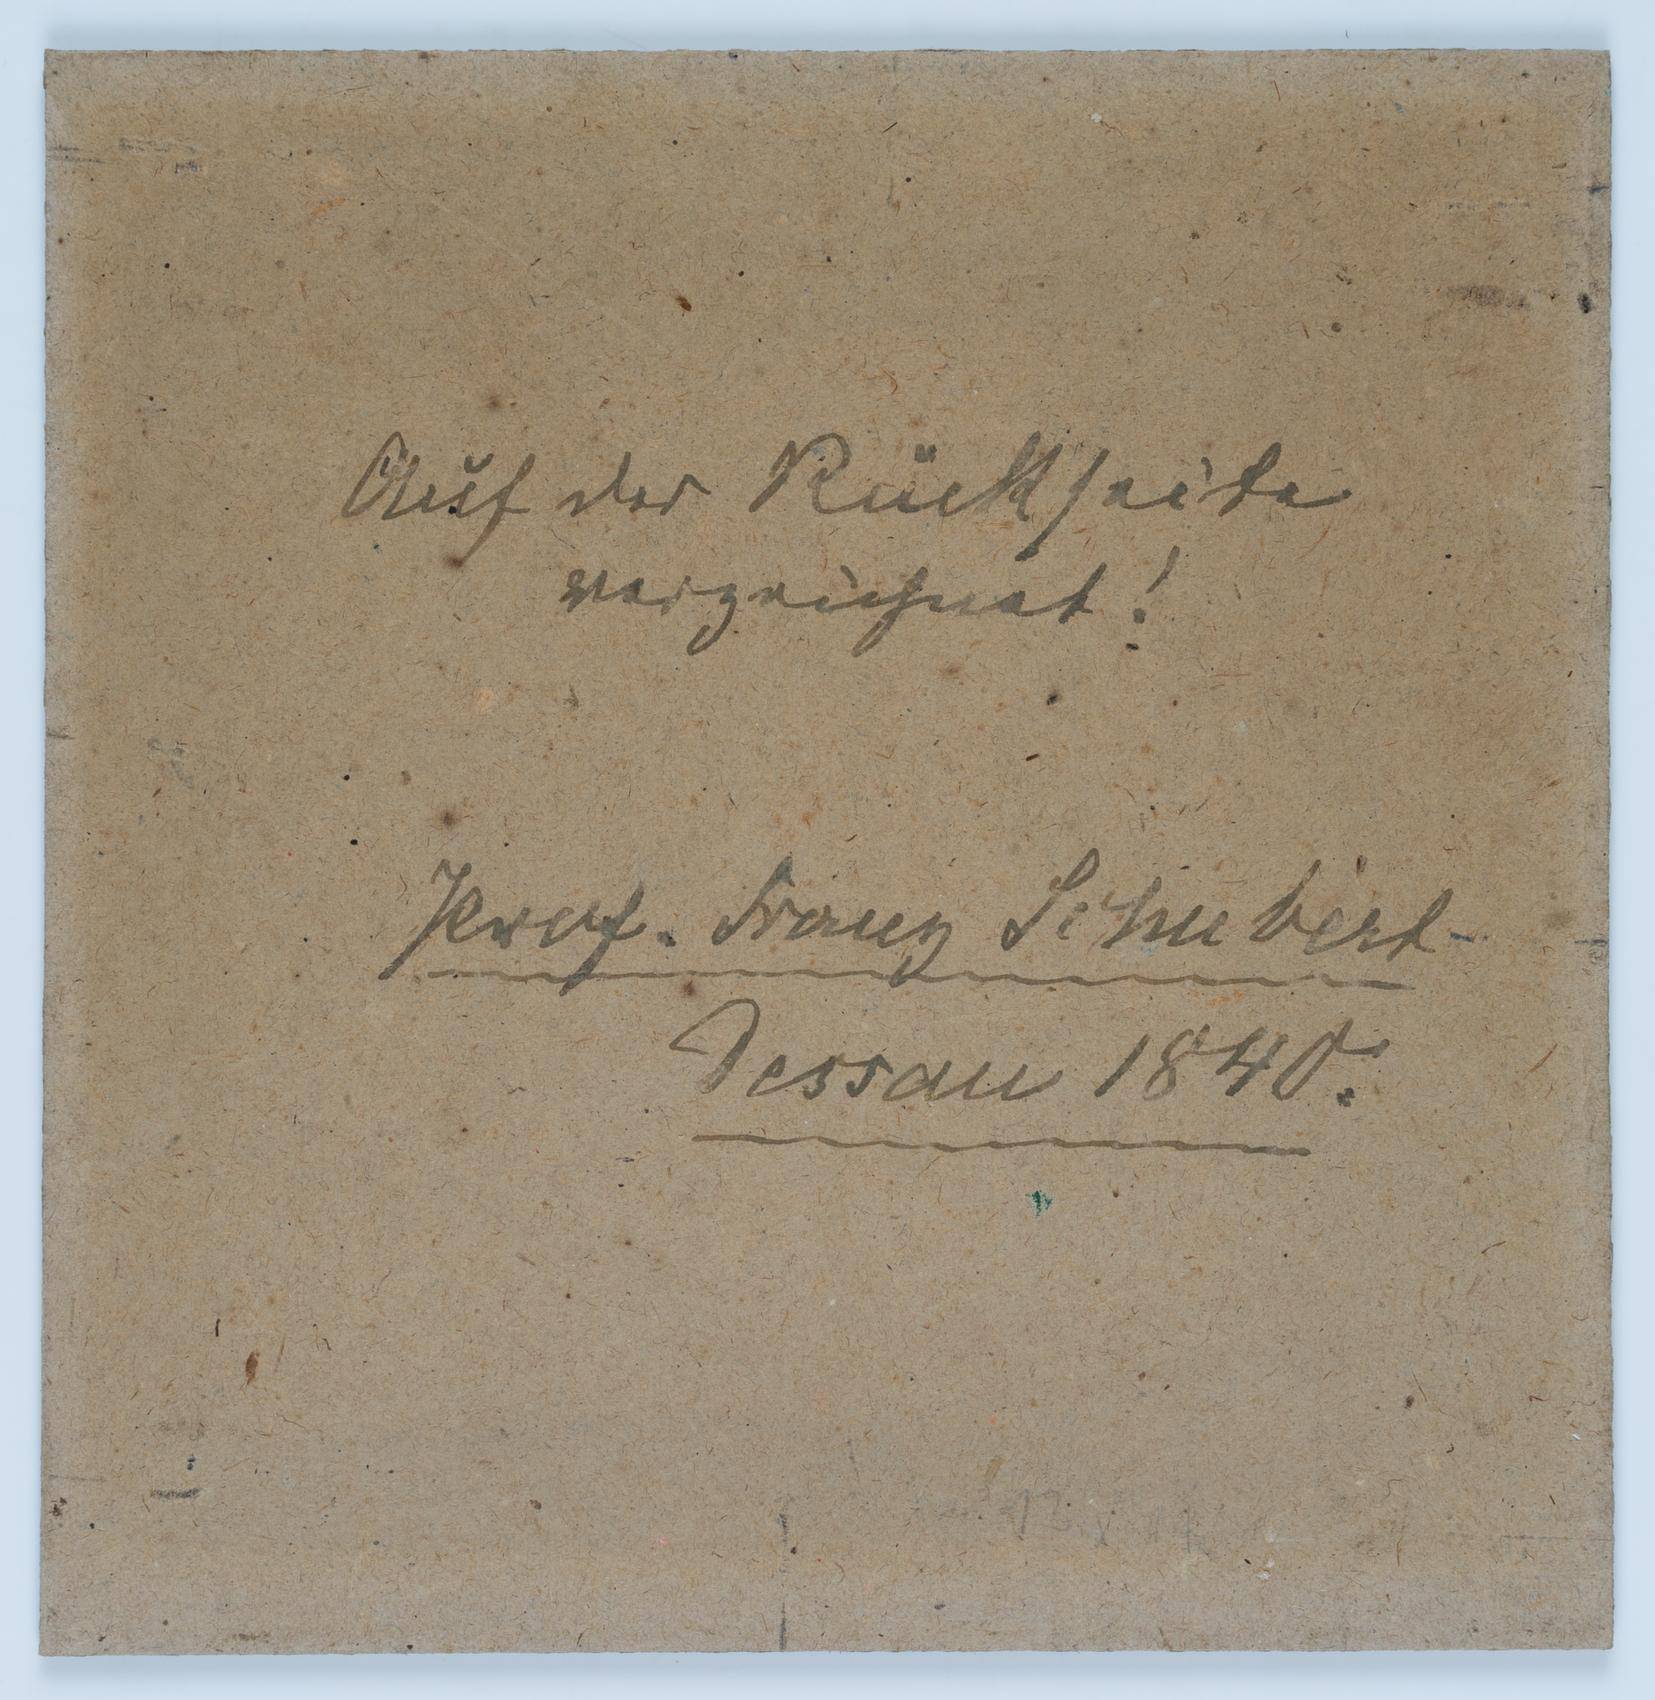 Auf der Rückseite
verzeichnet!
Prof. Franz Schubert
Dessau 1840.